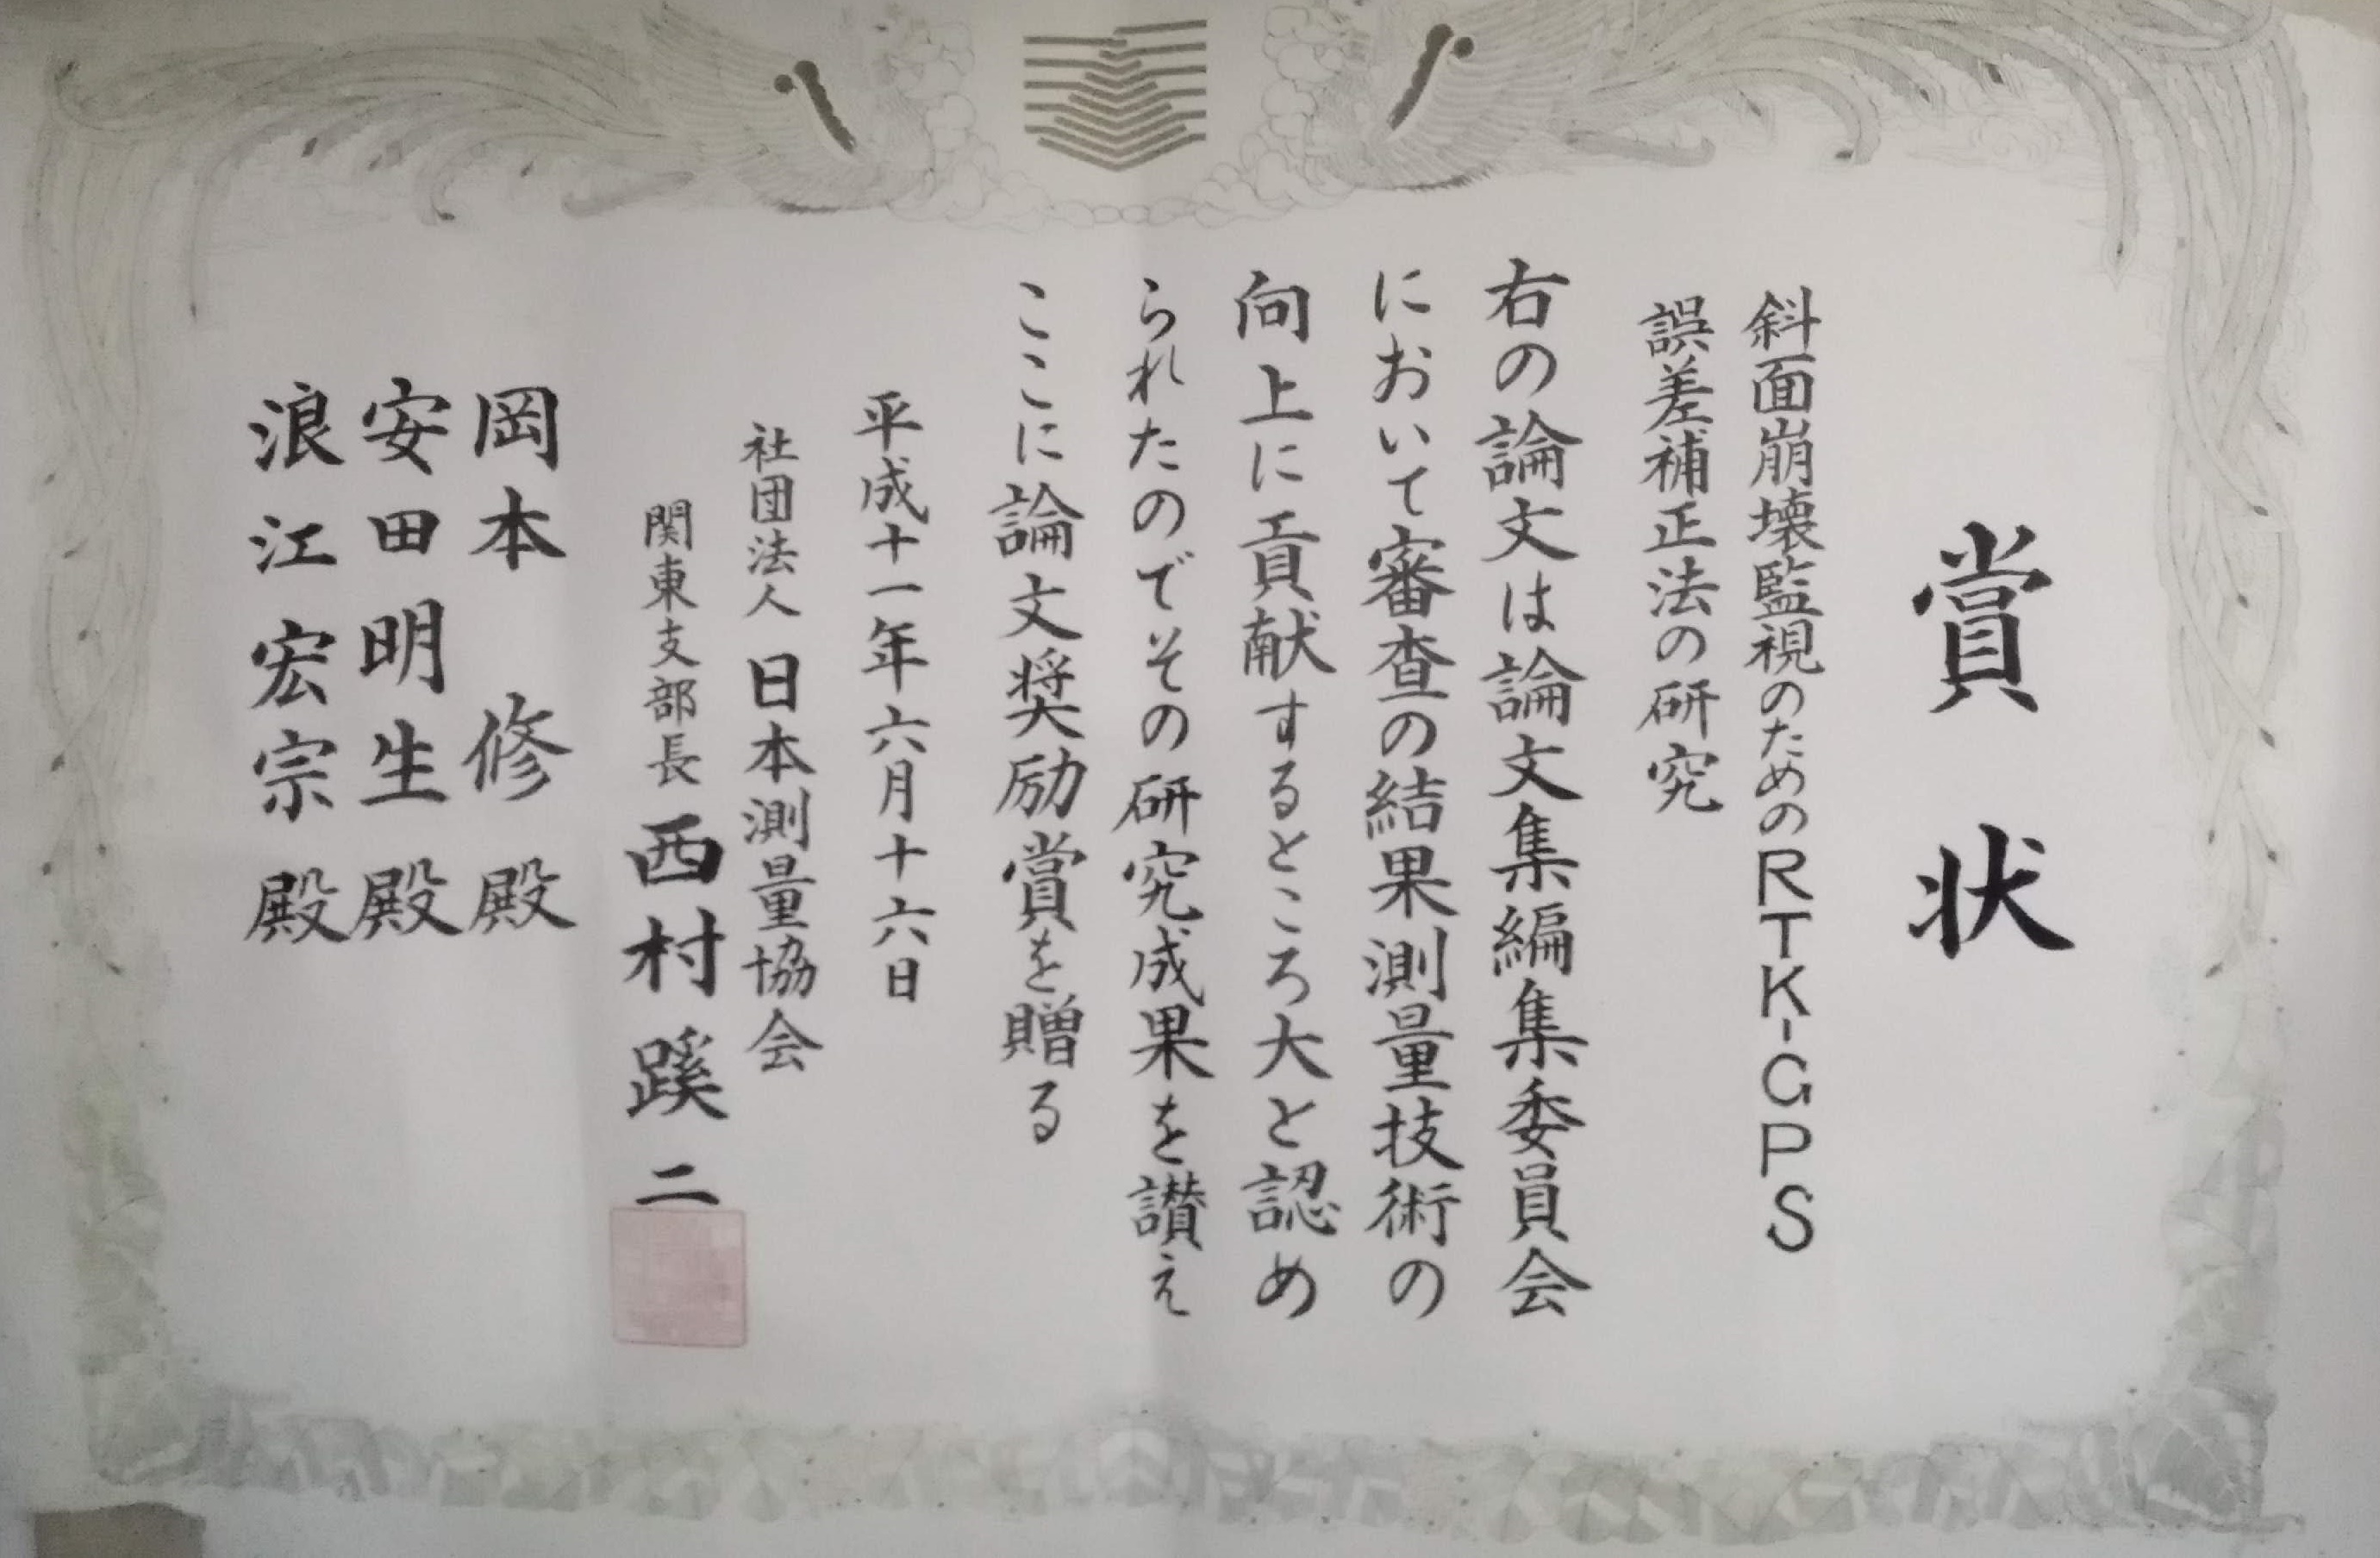 賞状
斜面崩壊監視のためのRTK-GPS
誤差補正法の研究
右の論文は論文集編集委員会
において審査の結果測量技術の
向上に貢献するところ大と認め
られたのでその研究成果を讃え
ここに論文奨励賞を贈る
平成十一年六月十六日
社団法人日本測量協会
関東支部長 西村蹊二
岡本 修 殿
安田明生 殿
浪江宏宗 殿